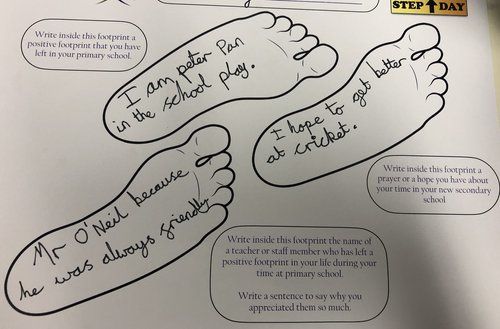 STEP DAY
Write inside this footprint a
positive footprint that you have
left in your primary school.
I am peter Pan
in the school play.
I hope to get better
at cricket.
Write inside this footprint a
prayer or a hope you have about
your time in your new secondary
school
Mr O'Neil because
he was always friendly
Write inside this footprint the name of
a teacher or staff member who has left a
positive footprint in your life during your
time at primary school.
Write a sentence to say why you
appreciated them so much.